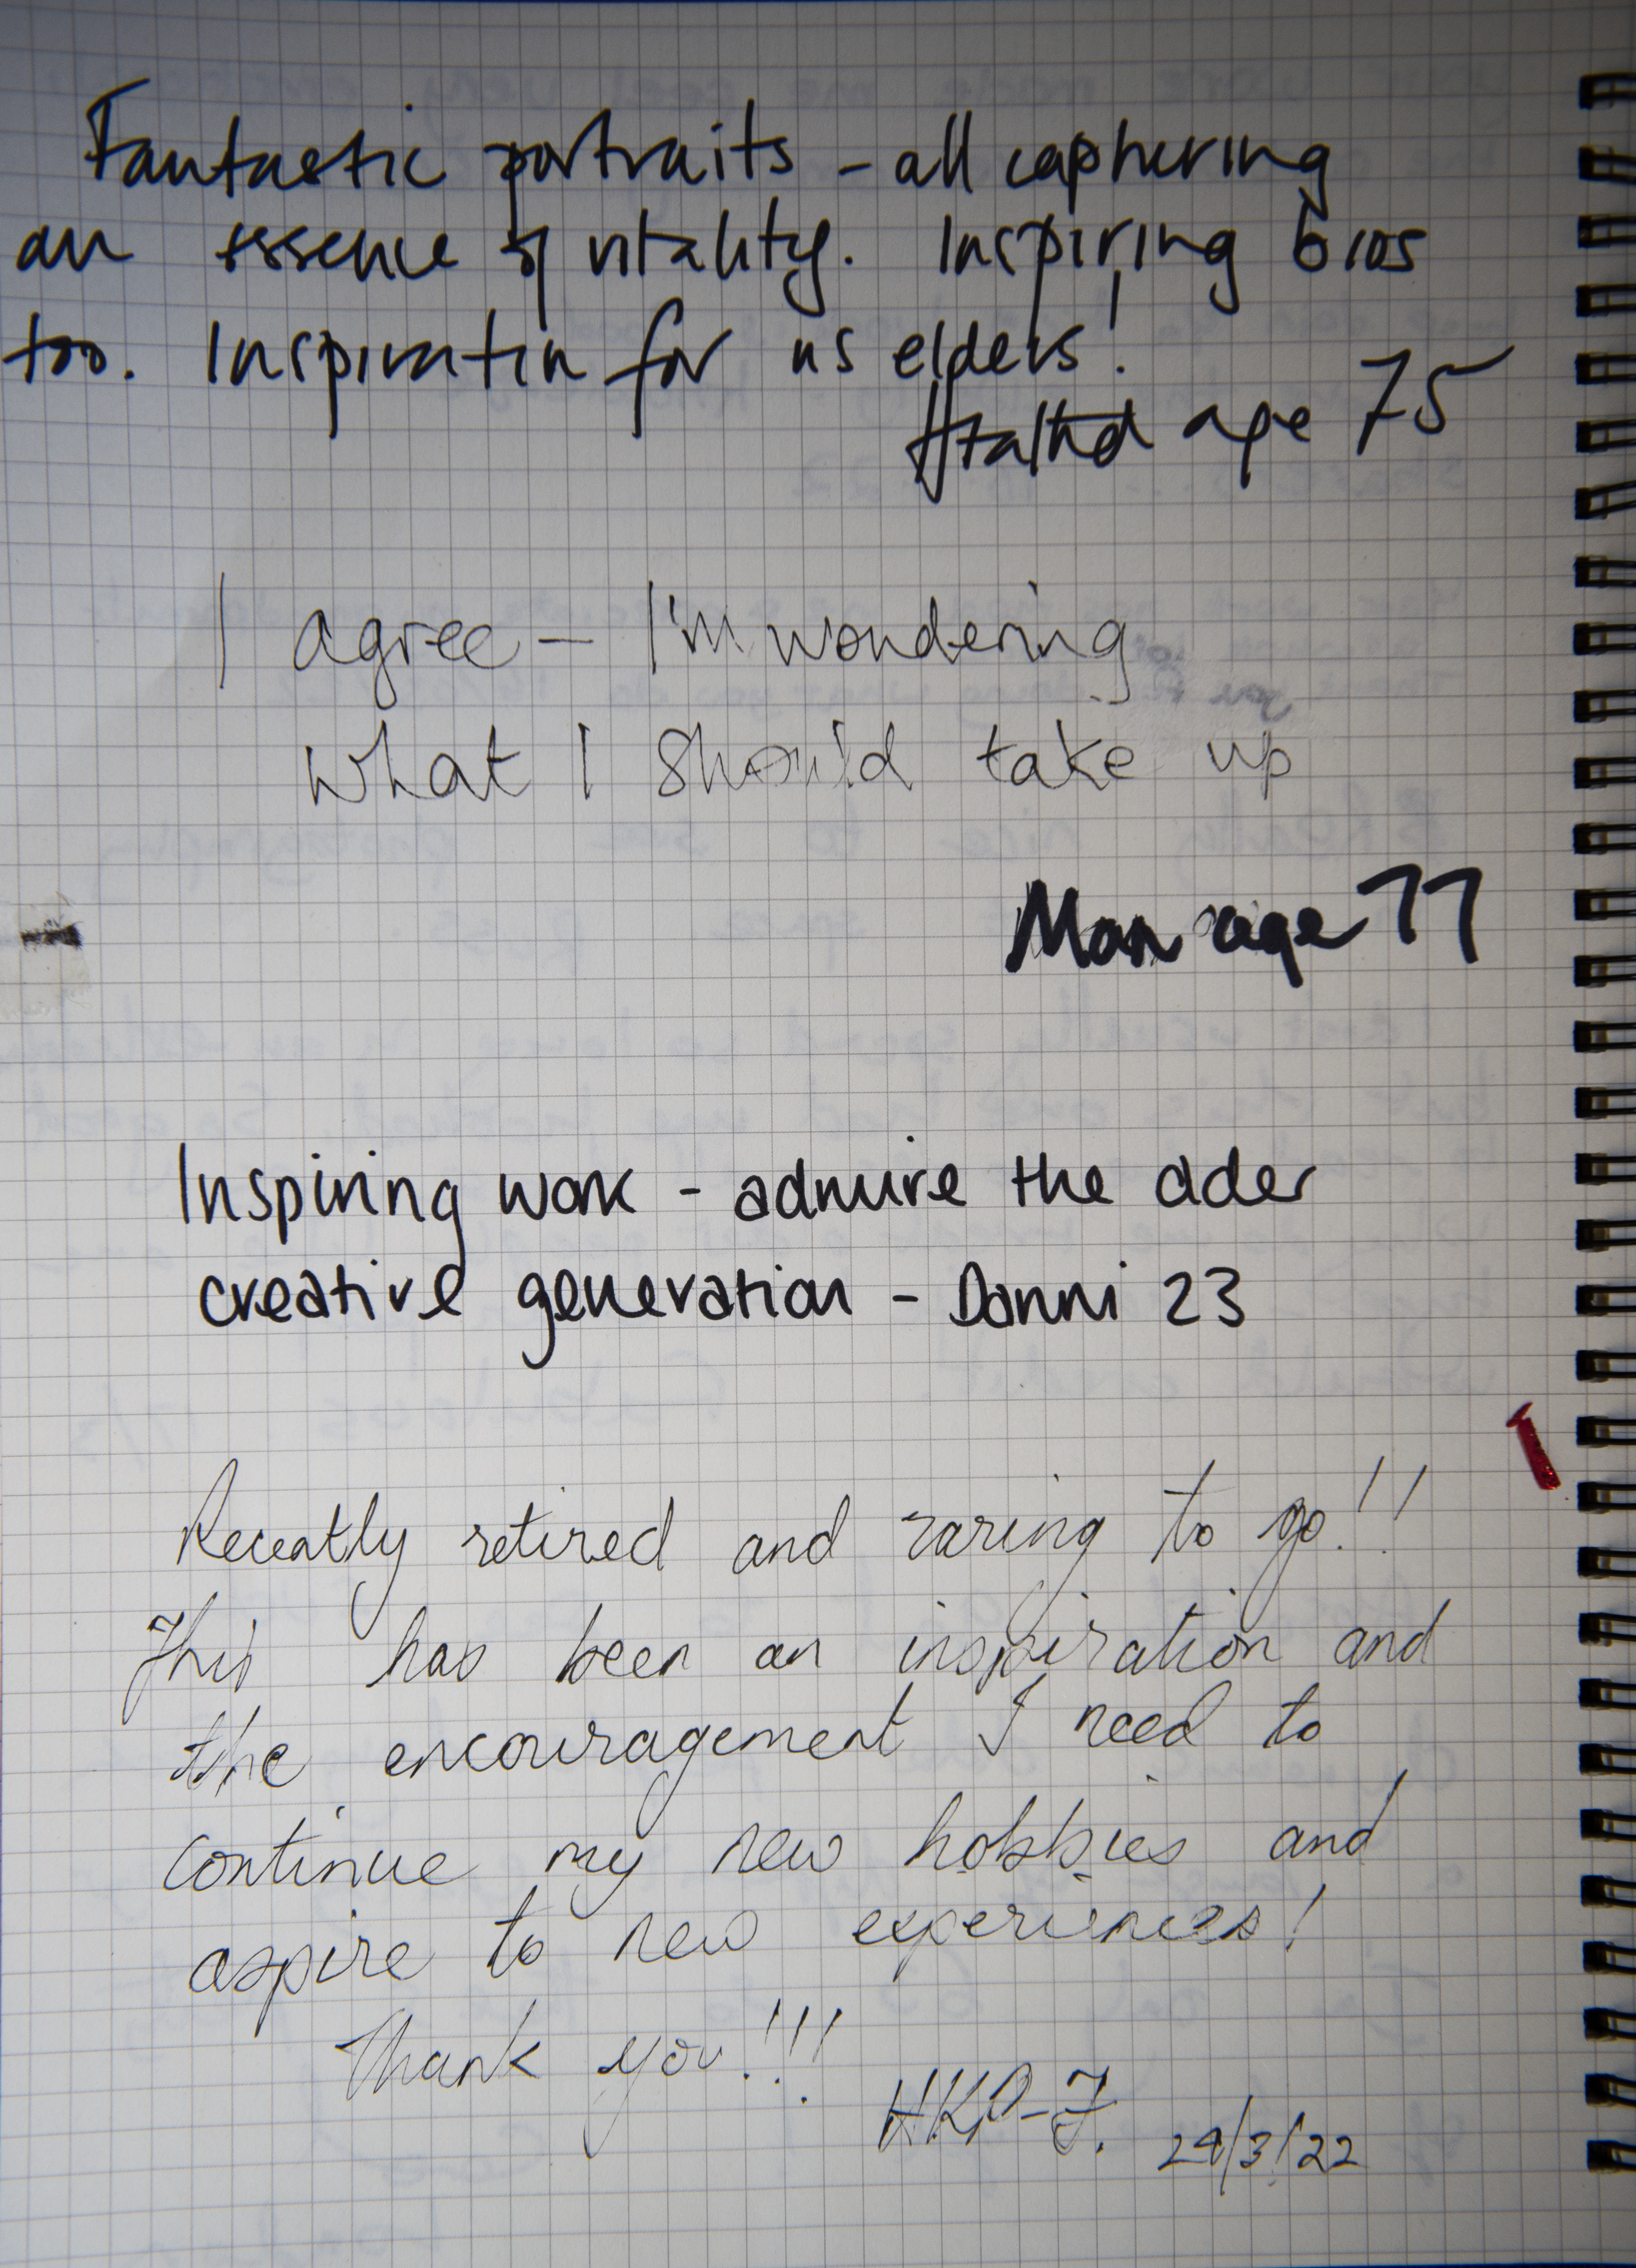 Fantastic portraits - all capturing
an essence of vitality. Inspiring bios
too. Inspiration for us elders!
age 75
I agree - I'm wondering
what I should take up
Man age 77
Inspiring work - admire the older
creative generation - Danni 23
Recently retired and raring to go!!
This has been an inspiration and
the encouragement I need to
continue my new hobbies and
aspire to new experiences!
Thank you!!!
HKP-J. 29/3/22